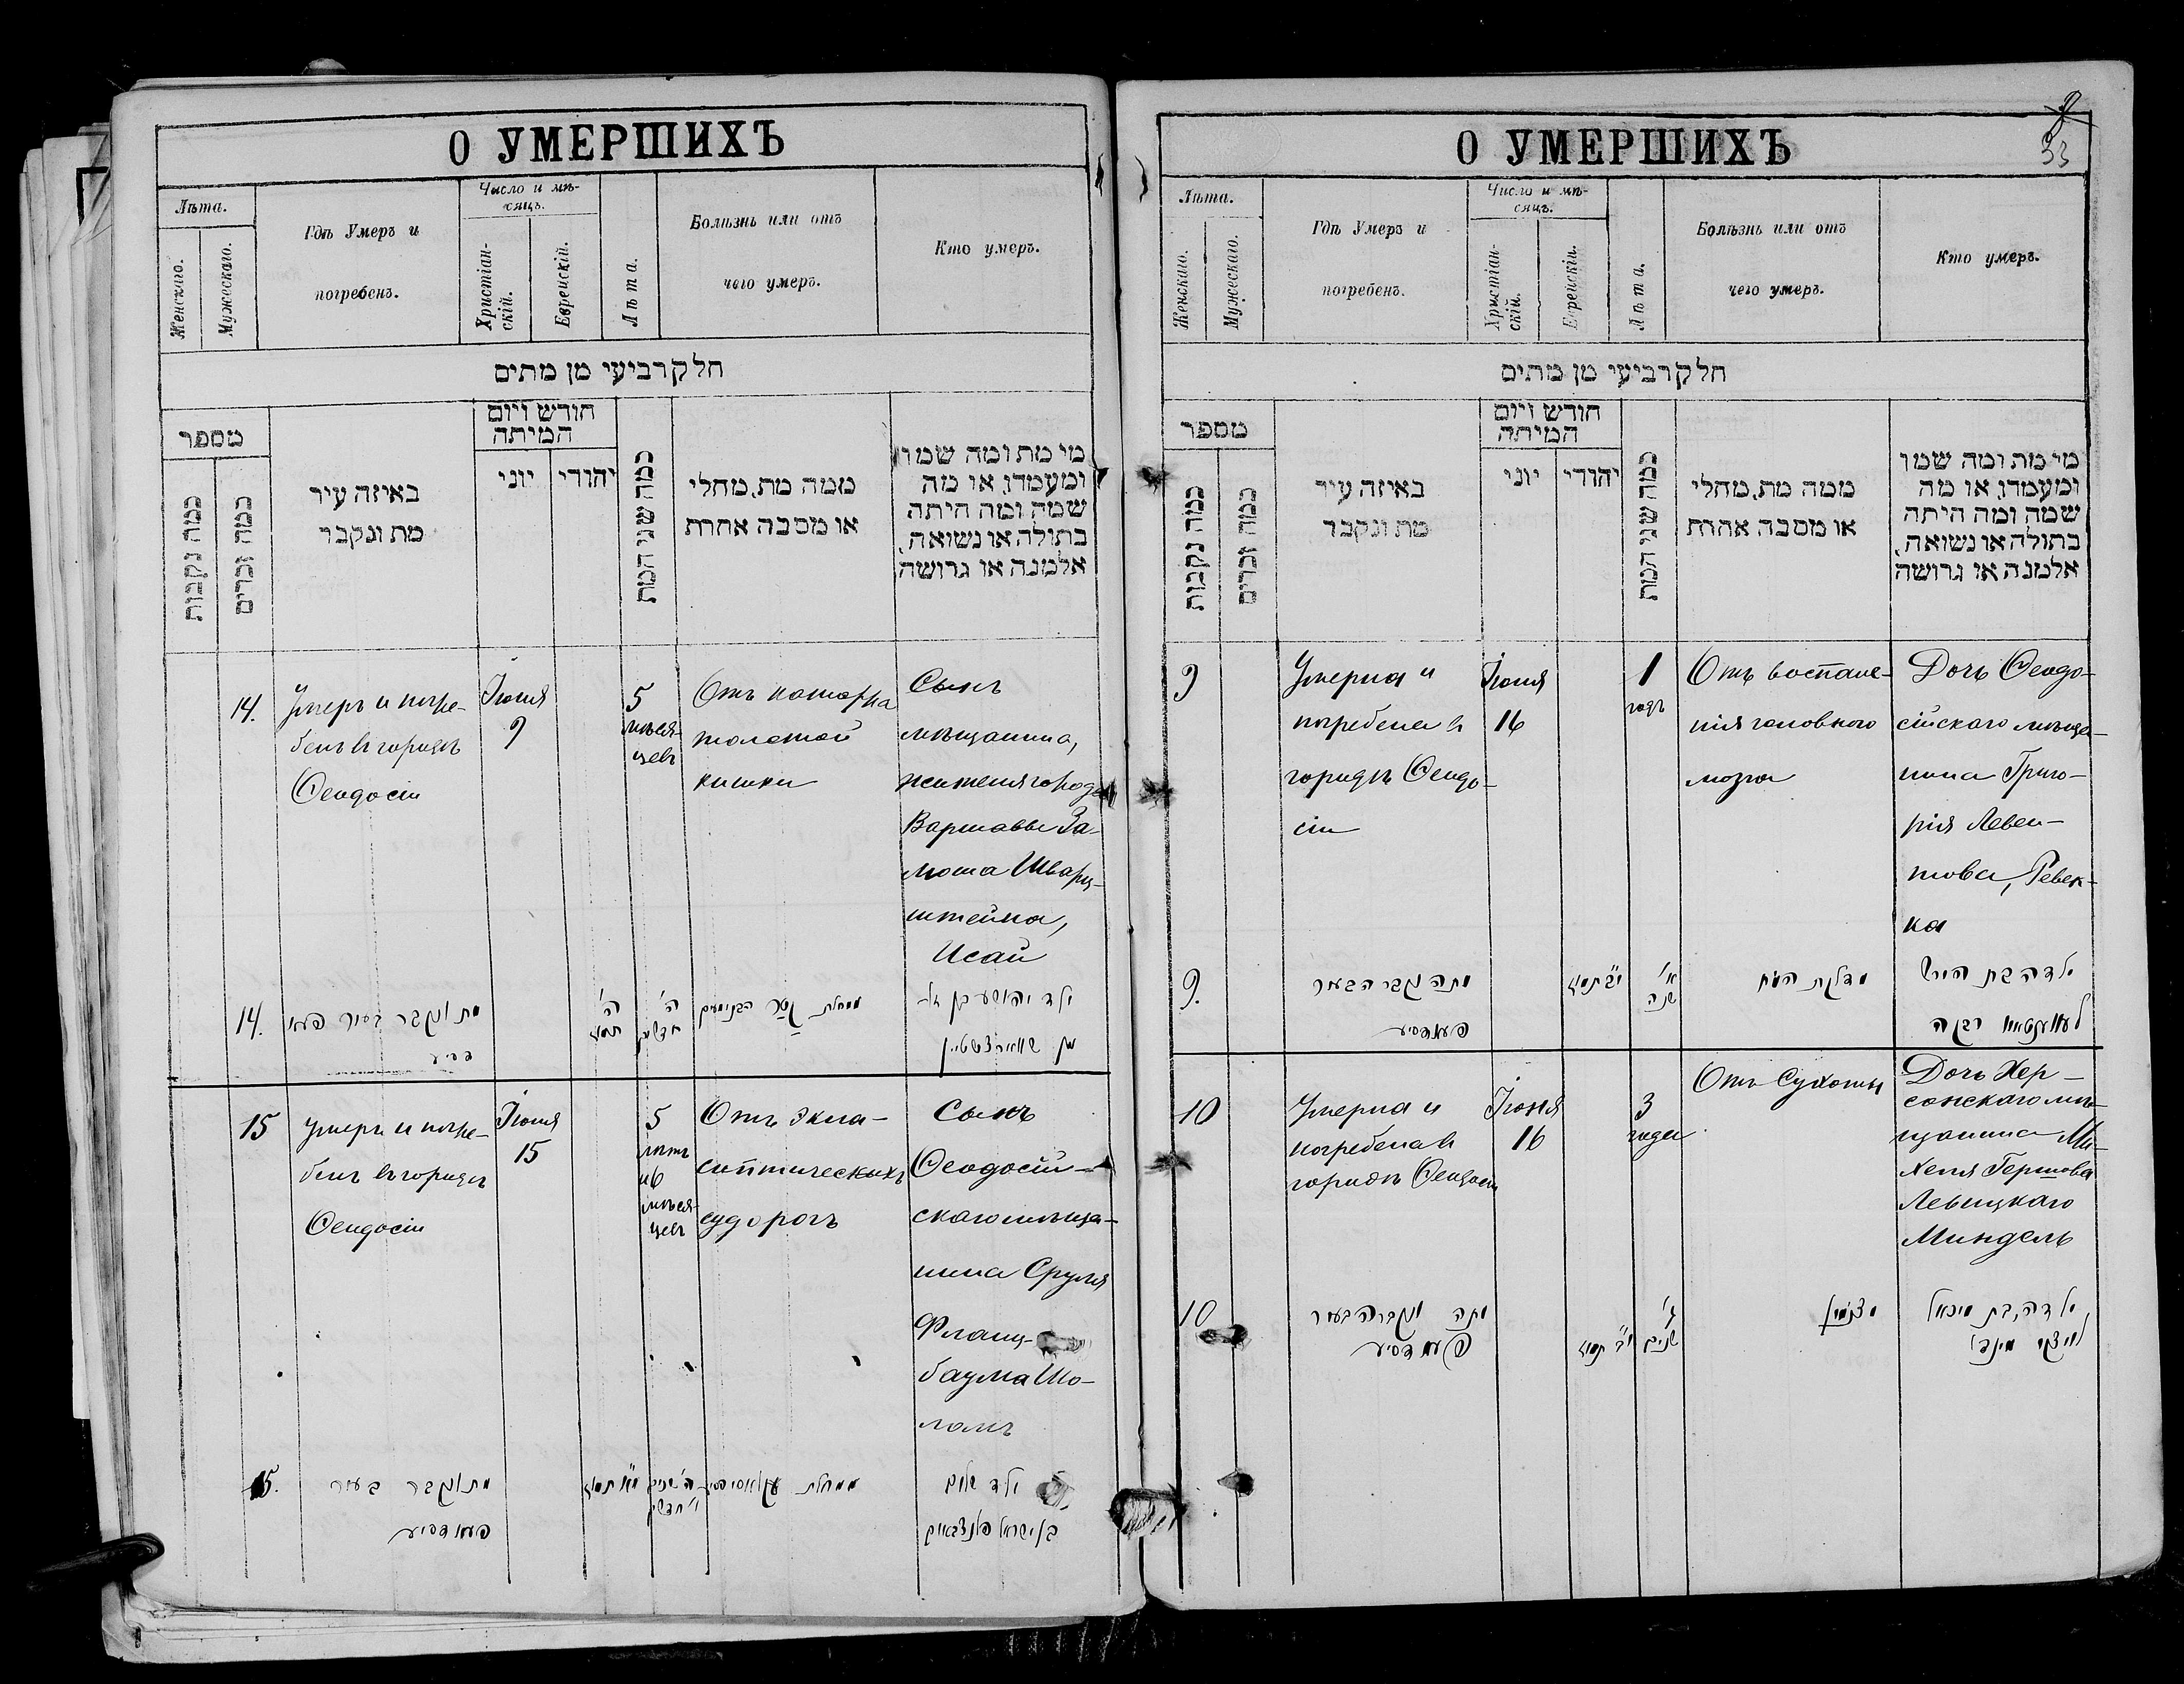 О УМЕРШИХЪ
Лѣта.
Женскаго.
Мужескаго.
Гдѣ Умеръ и
погребенъ.
Число и мѣ-
сяцъ.
Христіан-
скій.
Еврейскій.
Лѣта.
Болѣзнь или отъ
чего умеръ.
Кто умеръ.
חלק רביעי מן מתים
מספר
כמה נקבות
כמה זכרים
באיזה עיר
מת ונקבר
חודש ויום
המיתה
יוני
יהודי
כמה שני המת
ממה מת, מחלי
או מסבה אחרת
מי מת ומה שמו
ומעמדו, או מה
שמה ומה היתה
בתולה או נשואה,
אלמנה או גרושה
14.
Умеръ и погре-
бенъ въ городѣ
Ѳеодосіи
Іюня
9
5
мѣся-
цевъ
Отъ катарра
толстой
кишки
Сынъ
мѣщанина,
жителя города
Варшавы За-
Шварц-
штейна,
Исай
14.
מת ונקבר בעיר פעא
דסיע
ה'
תמוז
ה'
חדשים
ממחלת
ילד יהושע בן
שווארצשטיין
15
Умеръ и погре-
бенъ въ городѣ
Ѳеодосіи
Іюня
15
5
лѣтъ
и 6
мѣся-
цевъ
Отъ экла-
мптическихъ
судорогъ
Сынъ
Ѳеодосій-
скаго мѣща-
нина Сруля
Фланц-
баума Шо-
ломъ
15.
מת ונקבר בעיר
פעאדסיע
י"א תמוז
ה' שנים
ו' חדשים
ממחלת
ילד שלום
בן ישראל פלאנצבאום
О УМЕРШИХЪ
33
Лѣта.
Женскаго.
Мужескаго.
Гдѣ Умеръ и
погребенъ.
Число и мѣ-
сяцъ.
Христіан-
скій.
Еврейскій.
Лѣта.
Болѣзнь или отъ
чего умеръ.
Кто умеръ.
חלק רביעי מן מתים
מספר
כמה נקבות
כמה זכרים
באיזה עיר
מת ונקבר
חודש ויום
המיתה
יוני
יהודי
כמה שני המת
ממה מת, מחלי
או מסבה אחרת
מי מת ומה שמו
ומעמדו, או מה
שמה ומה היתה
בתולה או נשואה,
אלמנה או גרושה
9
Умерла и
погребена въ
городѣ Ѳеодо-
сіи
Іюня
16
1
годъ
Отъ воспале-
нія головного
мозга
Дочь Ѳеодо-
сійскаго мѣща-
нина Григо-
рія Левен-
това, Ревек-
ка
9.
מתה ונקברה בעיר
פעאדסיע
י"ב תמוז
א'
שנה
מדלקת המח
ילדה בת הירש
רבקה
10
Умерла и
погребена въ
городѣ Ѳеодосіи
Іюня
16
3
года
Отъ Сухотки
Дочь Хер-
сонскаго мѣ-
щанина Ми-
хеля Гершова
Левицкаго
Миндель
10
מתה ונקברה בעיר
פעאדסיע
י"ב תמוז
ג'
שנים
ילדה, בת מיכאל
לוויצקי מינדל